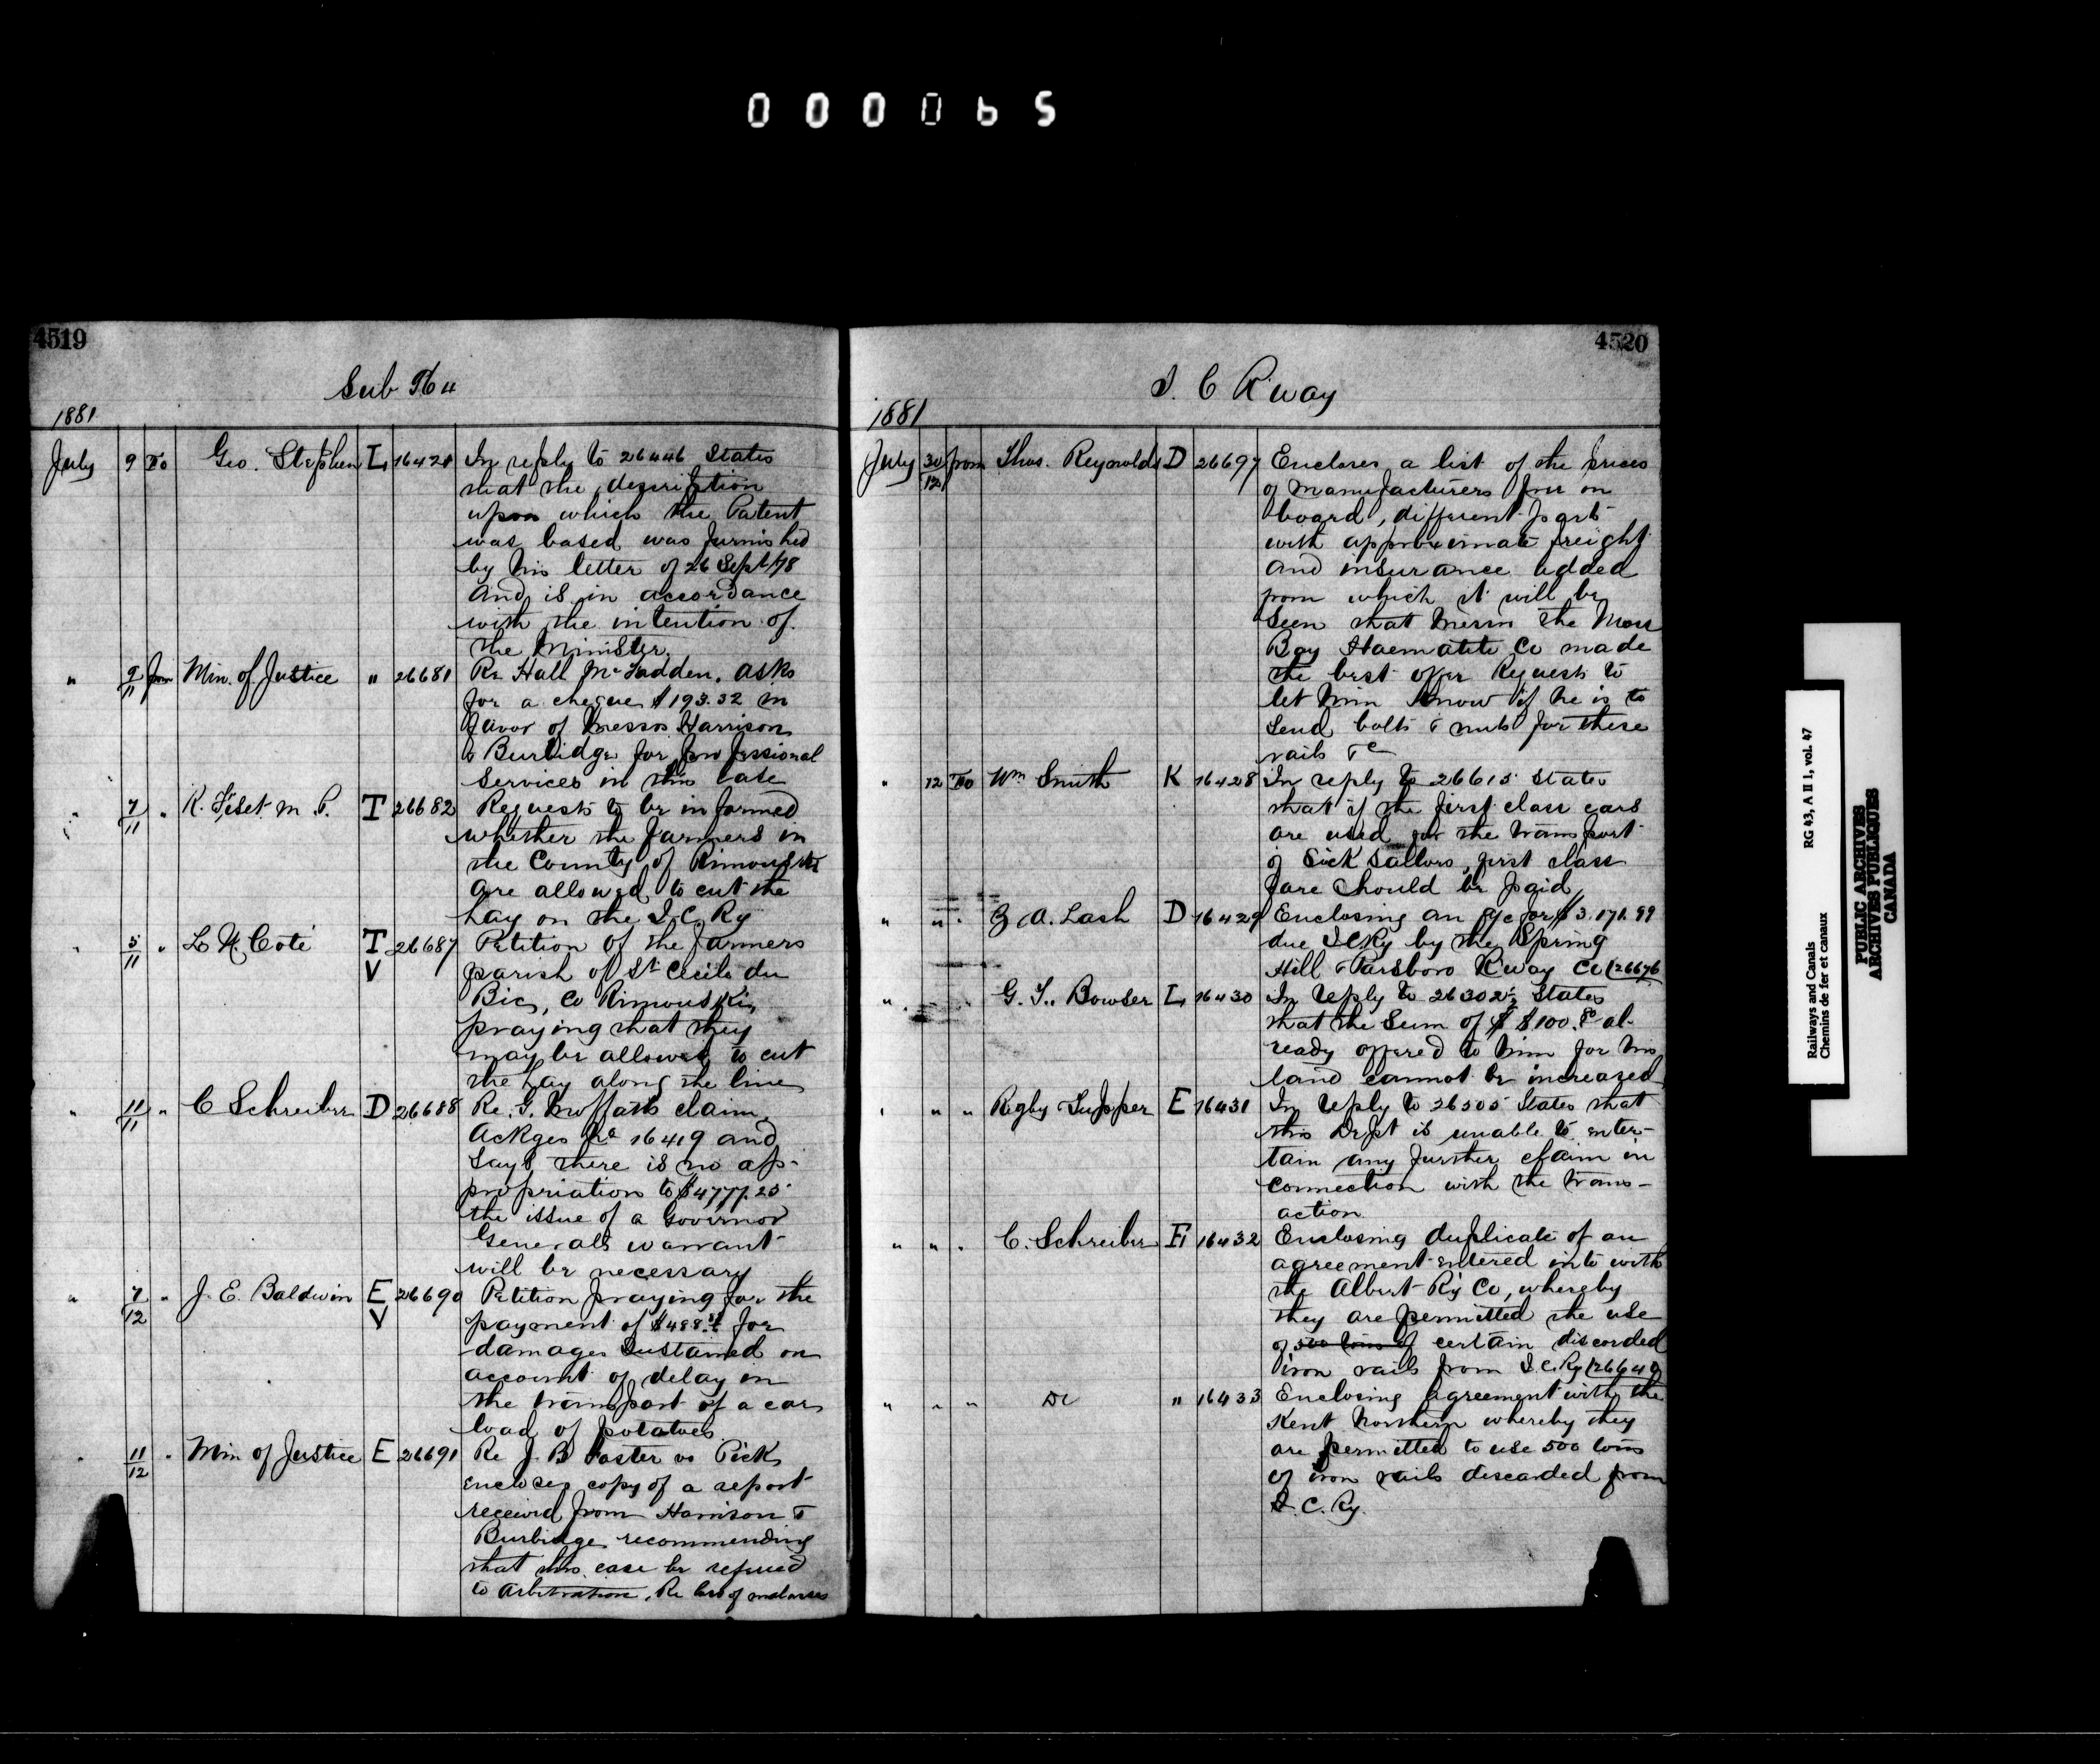 000065
4519
Sub No 4
1881
July 9 To Geo. Stephen L 16421 In reply to 26446 States
that the description
upon which the Patent
was based was furnished
by his letter of 26 Sept/78
and is in accordance
with the intention of
the Minister.
" 9/11 from Min. of Justice " 26681 Re Hall McFadden. asks
for a cheque $193.32 in
favor of Messrs Harrison
& Burbidge for professional
services in this case
" 7/11 " R. Fiset M.P. T 26682 Requests to be informed
whether the farmers in
the County of Rimouski
are allowed to cut the
hay on the I.C. Ry
" 5/11 " L N. Coté T V 26687 Petition of the farmers
parish of St Cecile du
Bic, Co Rimouski,
praying that they
may be allowed to cut
the hay along the line
" 11/11 " C Schreiber D 26688 Re. G. Moffats claim.
Ackges No 16419 and
says there is no ap-
propriation to $4777.25
the issue of a Governor
Generals warrant
will be necessary
" 7/12 " J. E. Baldwin E V 26690 Petition praying for the
payment of $488. for
damages sustained on
account of delay in
the transport of a car
load of potatoes
" 11/12 " Min of Justice E 26691 Re J. B Foster vs Pick
encloses copy of a report
received from Harrison &
Burbidge recommending
that this case be referred
to Arbitration. Re loss of molasses
4520
I. C R'way
1881
July 30/12 from Thos. Reynolds D 26697 Encloses a list of the prices
of manufacturers free on
board, different ports
with approximate freight
and insurance added
from which it will be
seen that Messrs the Moss
Bay Haematite Co made
the best offer Requests to
let him know if he is to
send bolts & nuts for these
rails &c
" 12 To Wm Smith K 16428 In reply to 26615 states
that if the first class cars
are used for the transport
of Sick Sailors, first class
fare should be paid
" " " Z A. Lash D 16429 Enclosing an a/c for $3.171.99
due I C Ry by the Spring
Hill & Parsboro R'way Co (26676
" " " G. T. Bowser L 16430 In reply to 26302½ States
that the sum of $ $100. al-
ready offered to him for his
land cannot be increased
" " " Rigby Tupper E 16431 In reply to 26505 States that
this Dept is unable to enter-
tain any further claim in
connection with the trans-
action
" " " C. Schreiber E 16432 Enclosing duplicate of an
agreement entered into with
the Albert Ry Co, whereby
they are permitted the use
of 500 tons of certain discorded
iron rails from I.C. Ry (26640
" " " Do " 16433 Enclosing agreement with the
Kent Northern whereby they
are permitted to use 500 tons
of iron rails discarded from
I. C. Ry.
Railways and Canals
Chemins de fer et canaux
RG 43, A II 1, vol. 47
PUBLIC ARCHIVES
ARCHIVES PUBLIQUES
CANADA